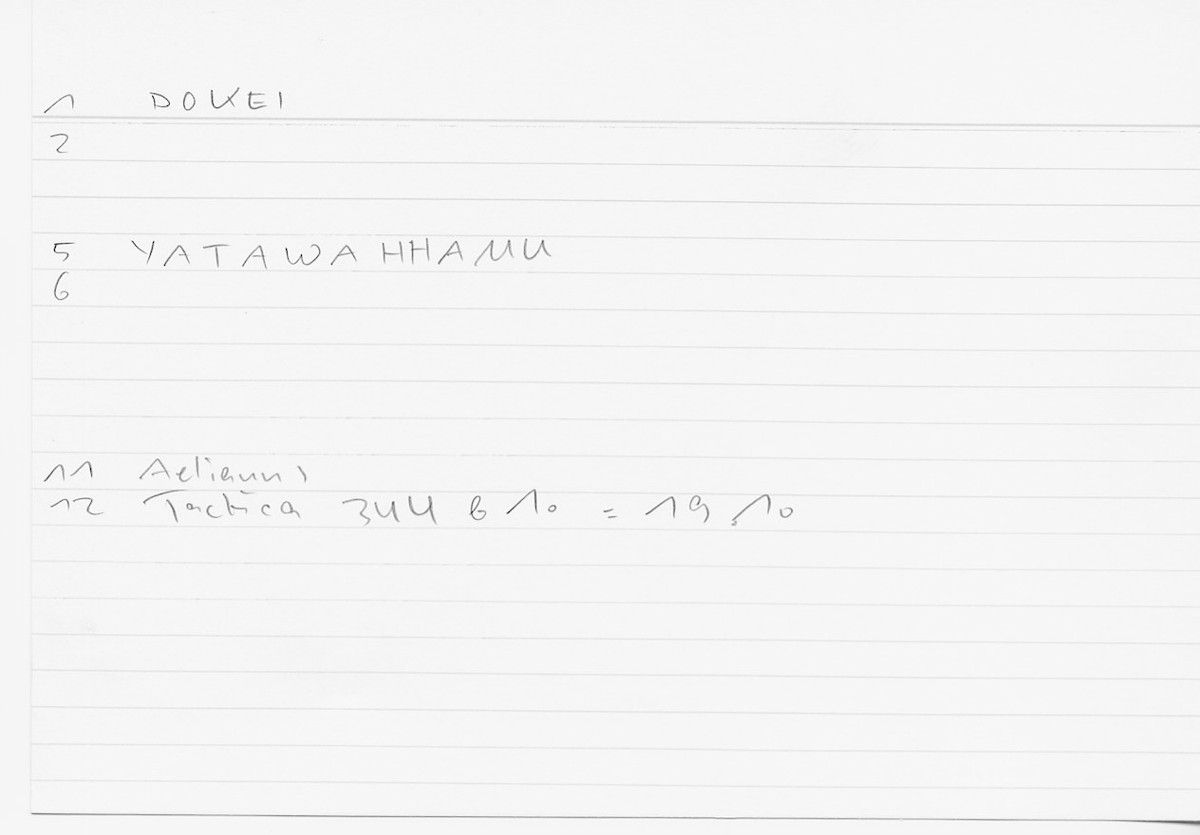 1 DOKEI
2
5 YATAWAHHAMU
6
11 Aelianus
12 Tactica 344 b 10 = 19,10